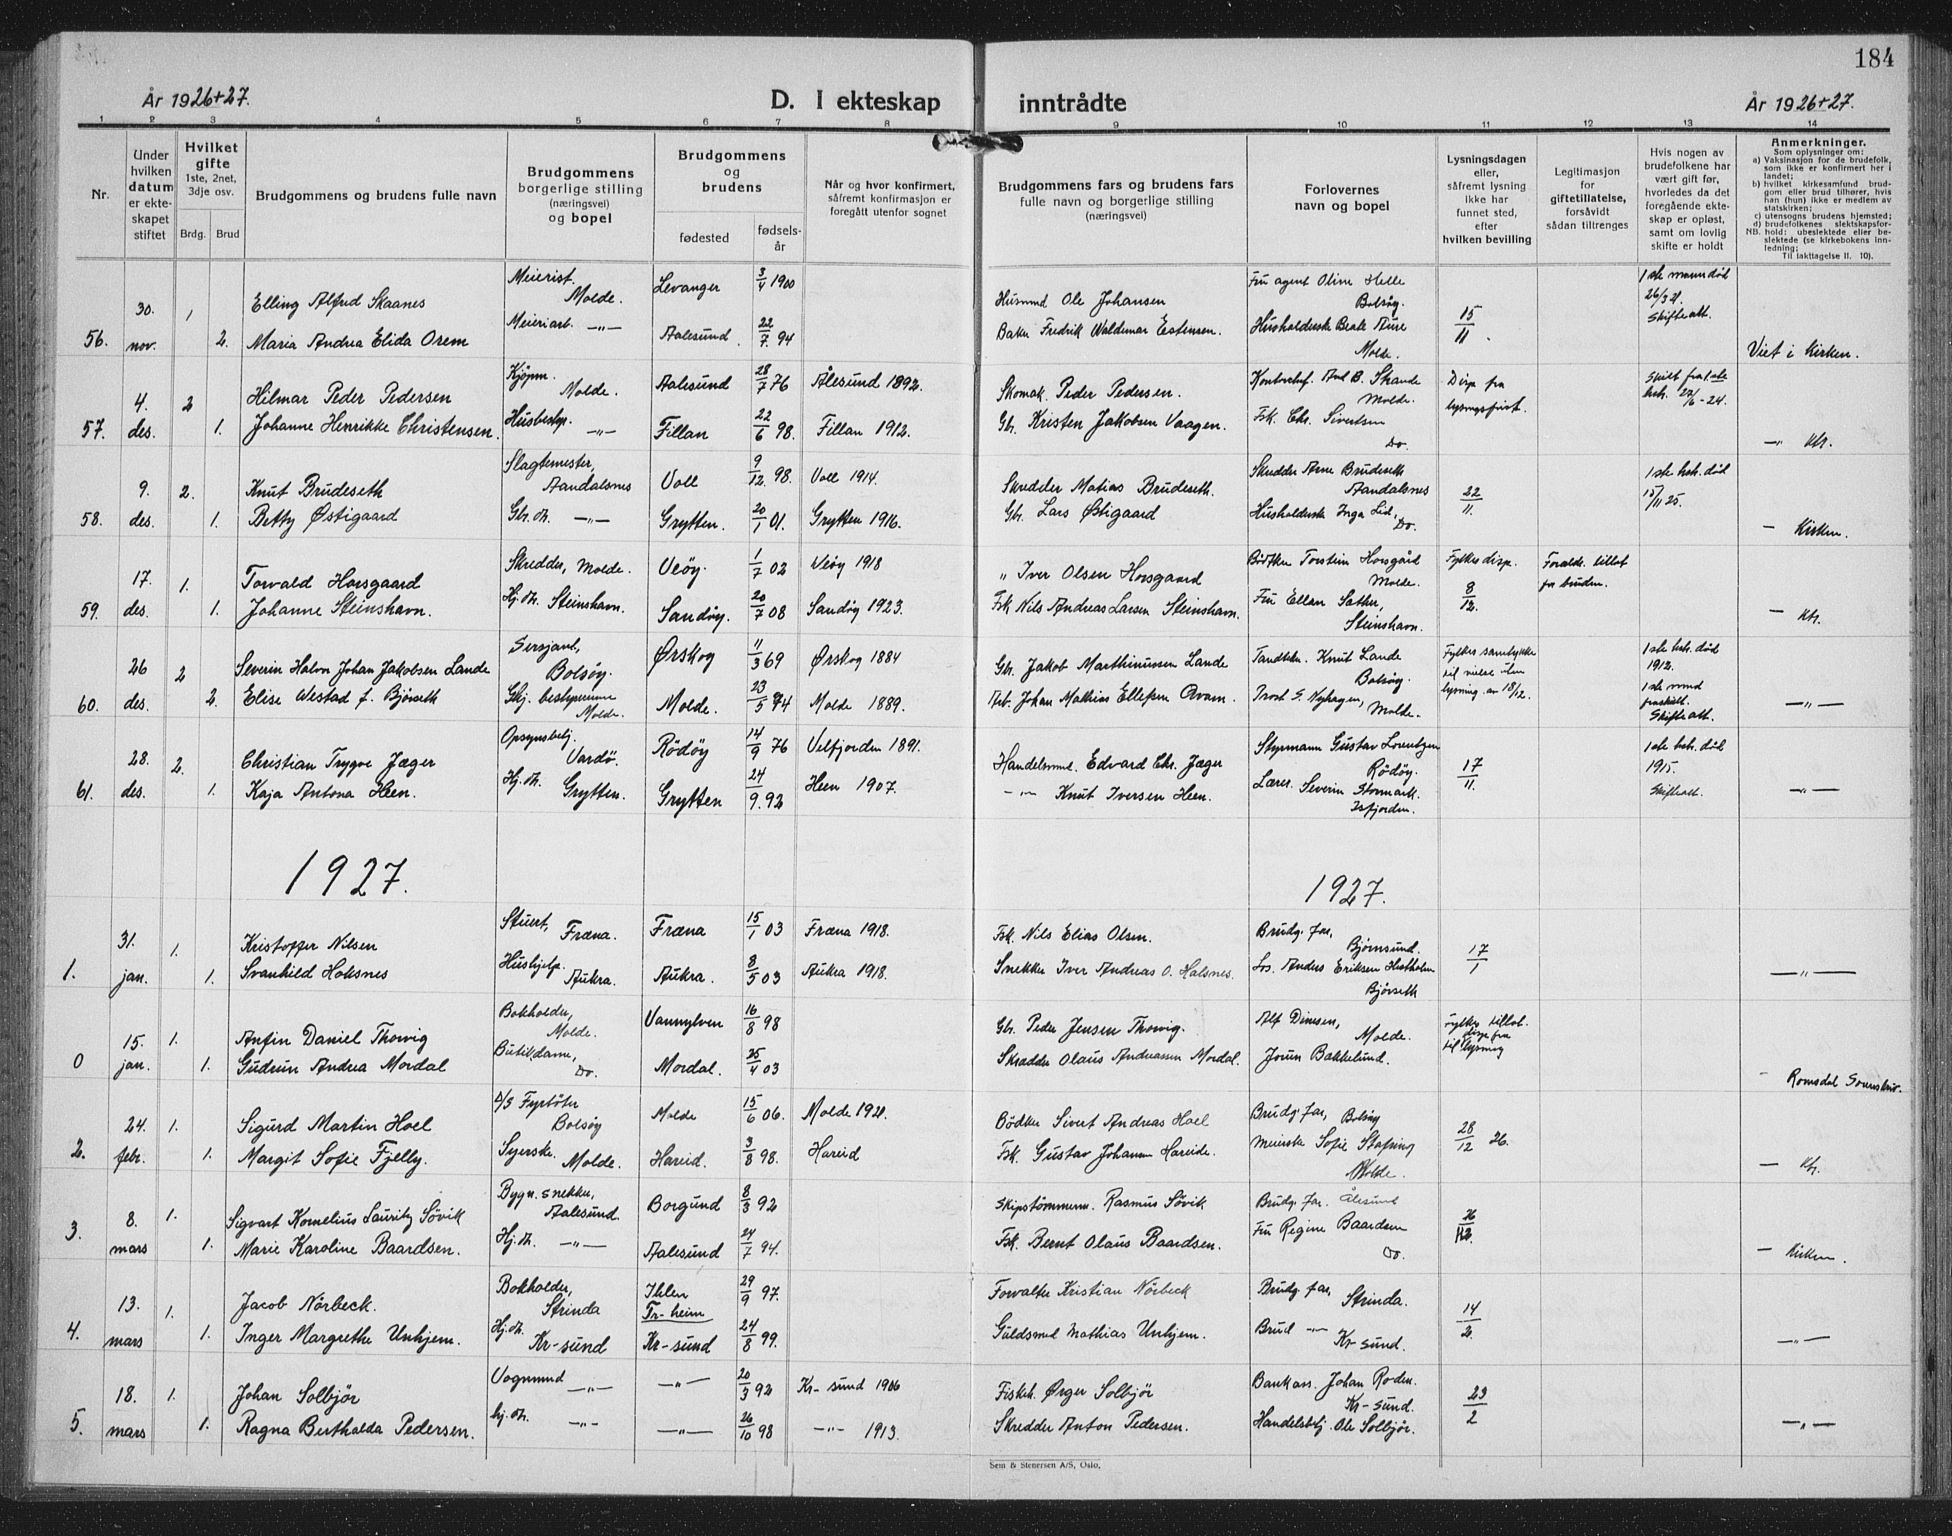 184
År 1926+27.
D. I ekteskap inntrådte
År 1926+27.
1 2 3 4 5 6 7 8 9 10 11 12 13 14
Nr.
Under hvilken datum er ekteskapet stiftet
Hvilket gifte 1ste, 2net, 3dje osv.
Brdg. Brud
Brudgommens og brudens fulle navn
Brudgommens borgerlige stilling (næringsvei) og bopel
Brudgommens og brudens
fødested
fødselsår
Når og hvor konfirmert, såfremt konfirmasjon er foregått utenfor sognet
Brudgommens fars og brudens fars fulle navn og borgerlige stilling (næringsvei)
Forlovernes navn og bopel
Lysningsdagen eller, såfremt lysning ikke har funnet sted, efter hvilken bevilling
Legitimasjon for giftetillatelse, forsåvidt sådan tiltrenges
Hvis nogen av brudefolkene har vært gift før, hvorledes da det foregående ekteskap er opløst, samt om lovlig skifte er holdt
Anmerkninger.
Som oplysninger om:
a) Vaksinasjon for de brudefolk, som ikke er konfirmert her i landet;
b) hvilket kirkesamfund brudgom eller brud tilhører, hvis han (hun) ikke er medlem av statskirken;
c) utensogns brudens hjemsted;
d) brudefolkenes slektskapsforhold: ubeslektede eller beslektede (se kirkebokens innledning;
NB.
Til iakttagelse II. 10).
56. 30. nov. 1 2.
Elling Alfred Skaanes Meierist. Molde. Levanger 3/4 1900 Husmnd Ole Johansen Fru agent Oline Helle Bolsöy. 15/11. 1 ste mann död 26/3 21. Skifteatt.
Maria Andrea Elida Orem Meieriarb. —"— Aalesund. 22/7. 94 Baker Fredrik Waldemar Estensen. Husholderske Beate Aure Molde. Viet i Kirken.
57. 4. des. 2 1.
Hilmar Peder Pedersen Kjøpm. Molde. Aalesund 28/7 76 Ålesund 1892. Skomak. Peder Pedersen. Molde. Disp fra lysningsfrist.
Johanne Henrikke Christensen. —"— Fillan 22/6 98. Fillan 1912. Gbr. Kristen Jakobsen Vaagen. Fsk. Chr. Sivertsen Do. —"— Ktr.
58. 9. des. 2. 1.
Knut Brudeseth Slagtemester, Aandalsnes Voll 9/12. 98. Voll 1914. Skredder Matias Brudeseth. Skredder Arne Brudeseth Aandalsnes 22/11. 1 ste hst. död 15/11 25.
Betty Østigaard Gbr. dt. —"— Grytten. 20/1 01. Grytten 1916. Gbr. Lars Østigaard Husholderske Inga Lid, Do. — Kirken.
59. 17. des. 1. 1.
Torvald Horsgaard Skredder, Molde. Veöy. 1/7 02 Veöy 1918 " Iver Olsen Horsgaard Bödtker Torstein Horsgård Molde. Fylkes disp. 8/12. Forældr. tillat fra bruden.
Johanne Steinshavn. Hj. dt. Steinshavn. Sandöy. 20/7 08 Sandöy 1923. Fsk Nils Andreas Larsen Steinshavn. Fru Ellen Sæther, Steinshavn. — Ktr.
60. 26 des. 2 2.
Severin Halvn Johan Jakobsen Lande Sersjant, Bolsöy. Ørskog 11/3 69 Ørskog 1884 Gbr. Jakob Marthinussen Lande Knut Lande Bolsöy. Fylkes samtykke til vielse uten lysning. av 18/12. 1 ste hst. död 1912.
Elise Westad f. Björseth bestyrerinne Molde. Molde. 23/5 74 Molde 1889. Arb. Johan Mathias Elleksen Qvam. Prost S. Nyhagen, Molde. 1 ste mnd fraskilt. Skifte att. —"—
61. 28. des. 2. 1.
Christian Trygve Jæger Opsynsbetj. Vardö. Rödöy 14/9 76 Velfjorden 1891. Handelsmnd. Edvard Chr. Jæger Styrmann Gustav Lorentzen Rödöy. 17/11. 1 ste hst. död 1915. Skifteatt.
Kaja Antona Heen. Hj. dt. Grytten. Grytten 24/9. 92 Heen 1907. —"— Knut Iversen Heen. Lærer. Severin Stormark. Isfjorden. —"—
1927. 1927.
1. 31. jan. 1. 1.
Kristoffer Nilsen Stuert, Fræna. Fræna 15/1 03 Fræna 1918. Fsk. Nils Elias Olsen. Brudg. far, Björnsund. 17/1
Svanhild Hoksnes Hushjelp. Aukra. Aukra. 8/5 03 Aukra 1918. Snekker Iver Andreas O. Halsnes. Los. Anders Eriksen Hestholm Björseth —"—
0 15. jan. 1. 1.
Anfin Daniel Thorvig Bokholder, Molde. Vannylven 16/8 98 Gbr. Peder Jensen Thorvig. Alf Dinesen, Molde. Fylkes tillat. disp fra til lysning
Gudrun Andrea Mordal Butikdame, Do. Mordal. 25/4 03 Skrædder Olaus Andreassen Mordal. Jorun Bakkelund. — Romsdal Sorenskriv.
2. 24. febr. 1. 1.
Sigurd Martin Hoel D/S Fyrtöter Bolsöy Molde 15/6 06. Molde 1921. Bödker Sivert Andreas Hoel Brudg. far, Bolsöy 28/12 26.
Margit Sofie Fjelby. Syerske. Molde. Hareid. 3/8 98. Hareid Fsk. Gustav Johannes Hareide. Meierske Sofie Molde. — Ktr.
3. 8. mars 1. 1.
Sigvart Kornelius Lauritz Sövik Bygn. snekker, Aalesund. Borgund 8/3 92 Skipstømmerm. Rasmus Sövik Brudg. far. Ålesund 26/2.
Marie Karoline Baardsen. Hj. dt. —"— Aalesund 24/7 94. Fsk. Bernt Olaus Baardsen. Fru Regine Baardsen Do. — Kirken.
4. 13. mars 1. 1.
Jacob Nörbeck. Bokholder, Strinda Ihlen Tr-heim 29/9 97. Forvalter Kristian Nörbeck Brudg. far, Strinda. 14/2.
Inger Margrethe Unhjem. Hj. dt. Kr-sund Kr-sund 24/8 99. Guldsmed Mathias Unhjem. Brud —"— Kr-sund. —"—
5. 18. mars 1. 1.
Johan Solbjör Vognmand —"— —"— 20/5 92 Kr-sund 1906 Fiskeh. Ørger Solbjör Bankass. Johan Roden. Kr-sund. 23/2
Ragna Berthalda Pedersen. hj. dt. —"— —"— 26/10 98 —"— 1913. Skredder Anton Pedersen. Handelsbetj. Ole Solbjör. —"—
Sem & Stenersen A/S, Oslo.